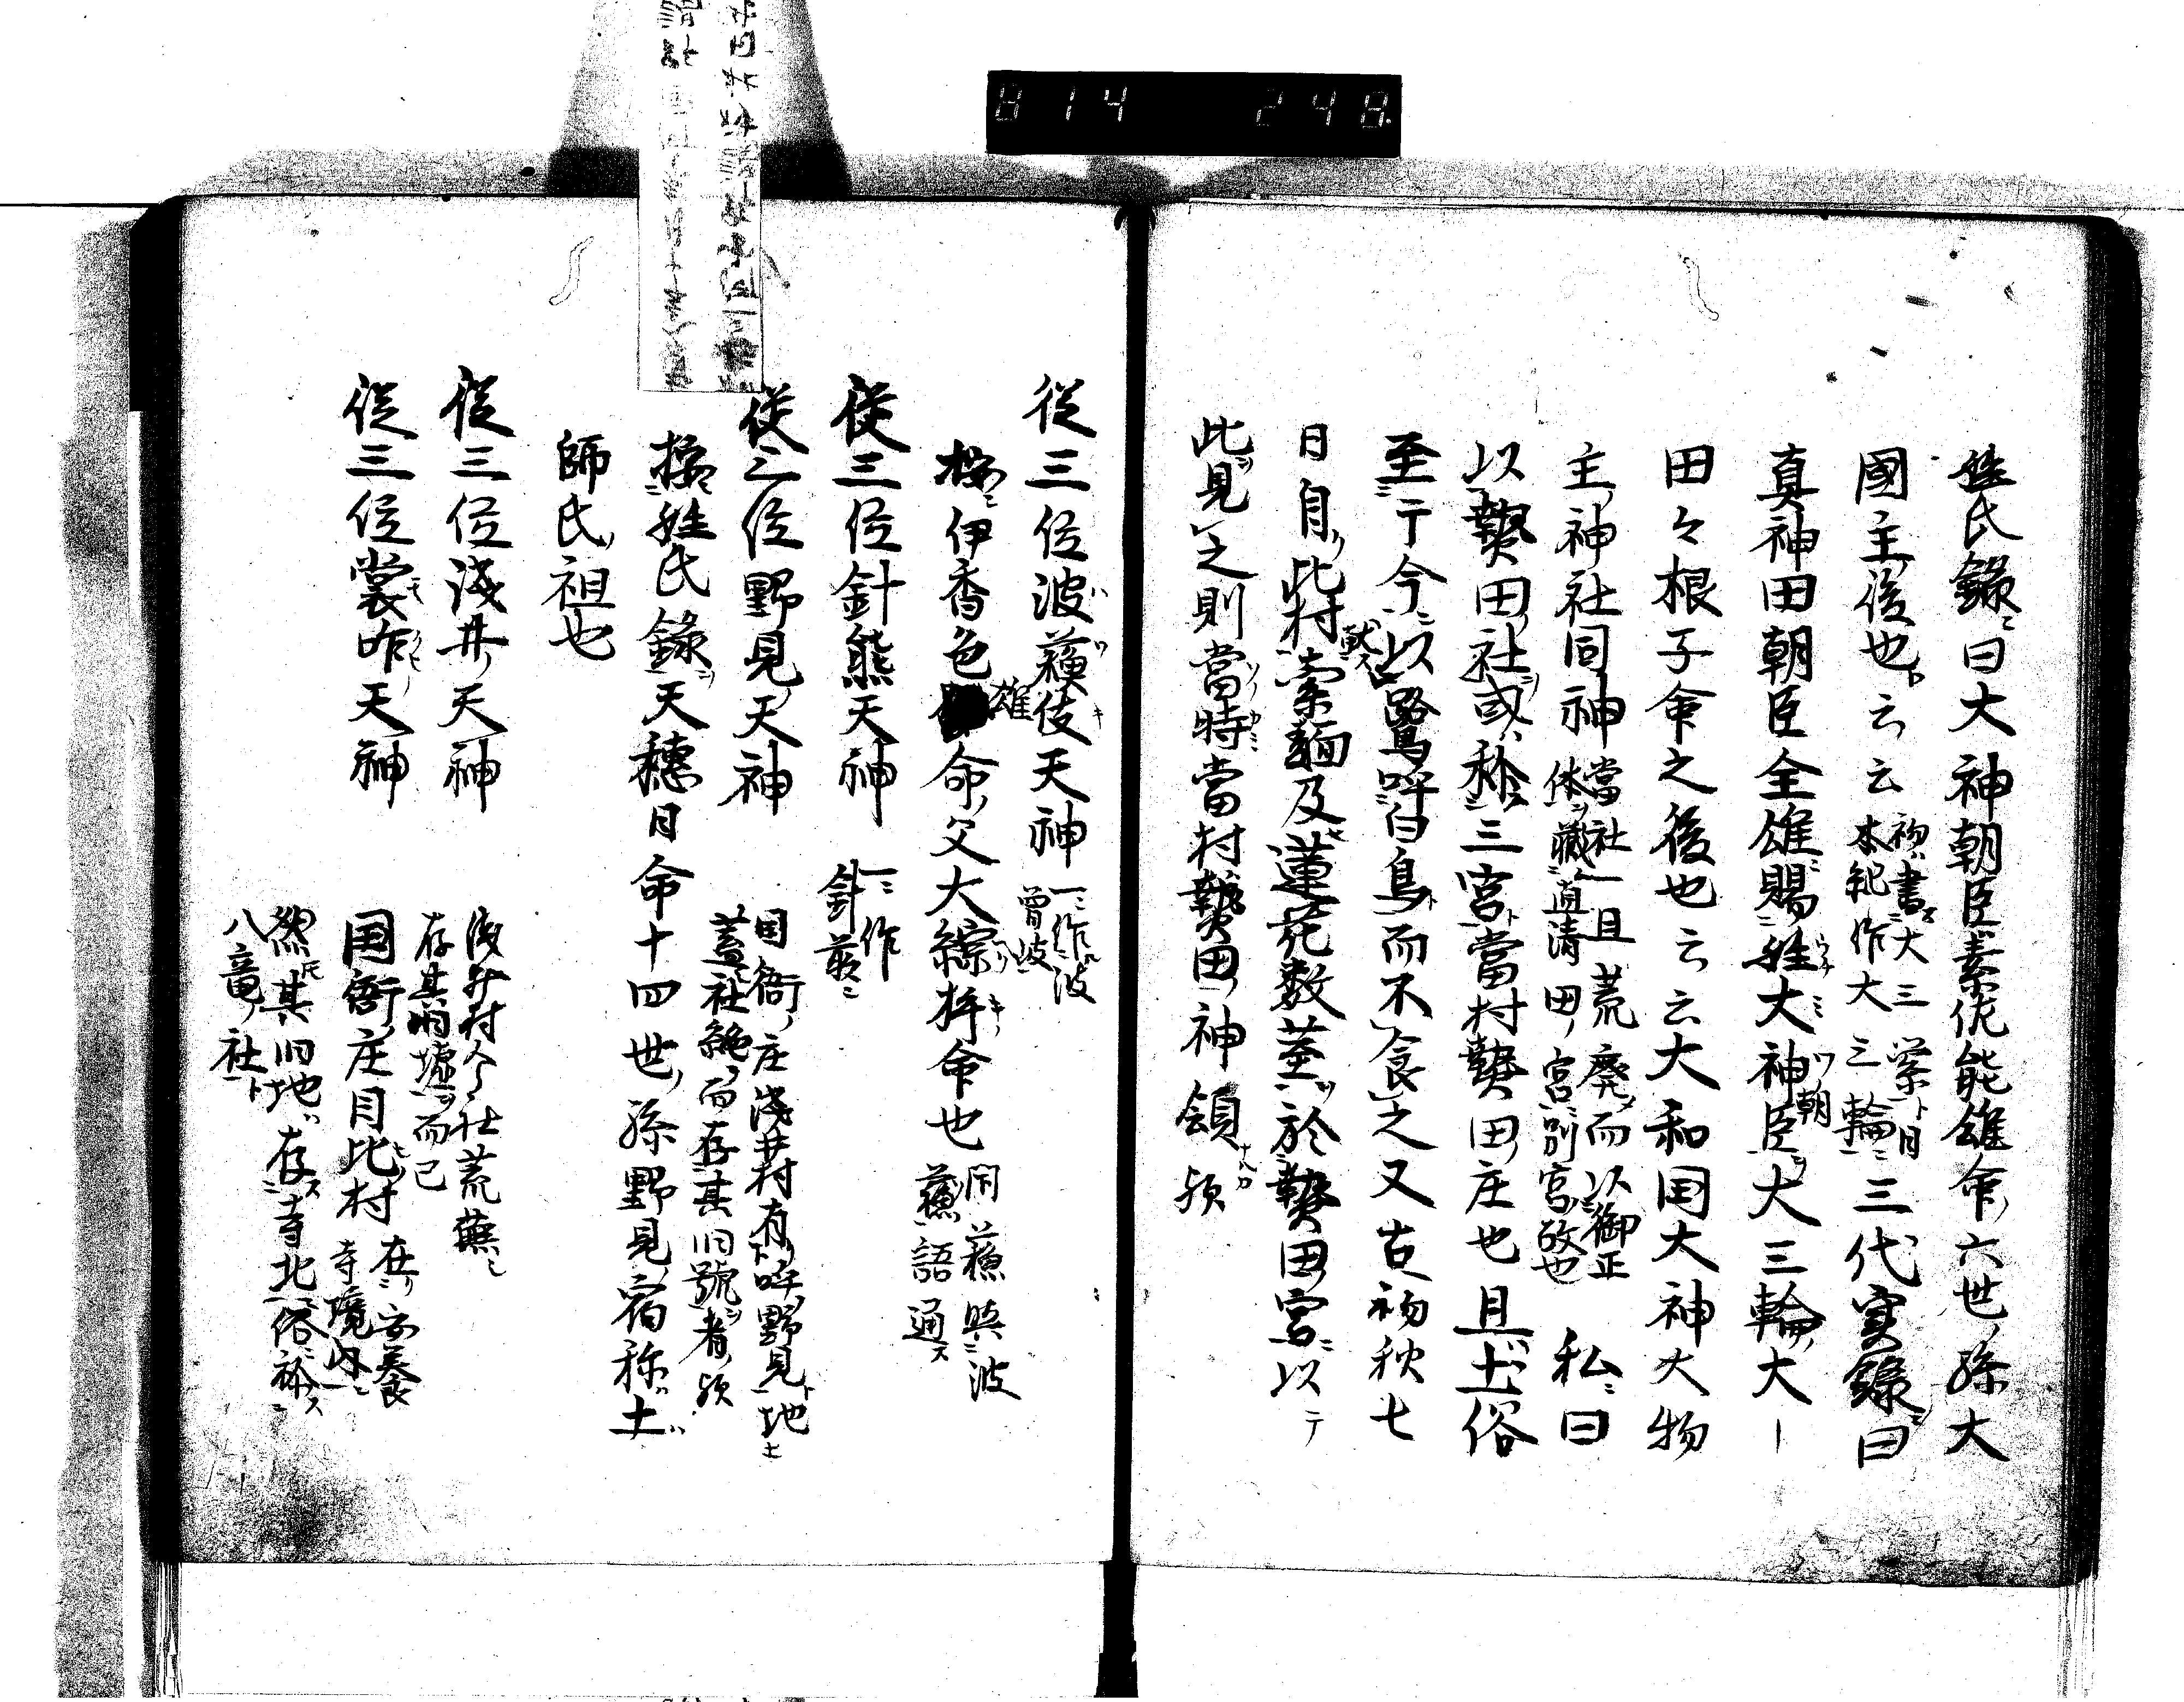 姓氏錄曰大神朝臣素佐能雄命六世孫大
國主後也云云
初書大三萦ト日
本紀作大三輪
三代実錄曰
真神田朝臣全雄賜姓大神朝臣大三輪大ー
田々根子命之後也云云大和国大神大物
主神社同神
當社一旦荒廃而以御正
体藏直清田宮別宮故也
私曰
以贄田社或称三宮當村贄田庄也且土俗
至于今以鷺呼白鳥而不食之又古初秋七
日自此村献索麺及蓮花数茎於贄田宮以テ
此見之則當時當村贄田神領歟
従三位波蘓伎天神
一作波
曽波
按伊香色雄命父大綜杵命也
閇蘓與波
蘓語通
従三位針熊天神
一作
針前
従三位野見天神
国衙庄浅井村有呼野見地
蓋社絶而存其旧號者歟
按姓氏錄天穂日命十四世孫野見宿祢土
師氏祖也
従三位浅井天神
浅井村今社荒蕪
存其旧墟而已
従三位裳咋天神
国衙庄目比村
在安養
寺境内
然其旧地存寺北俗称
八竜社
814 248